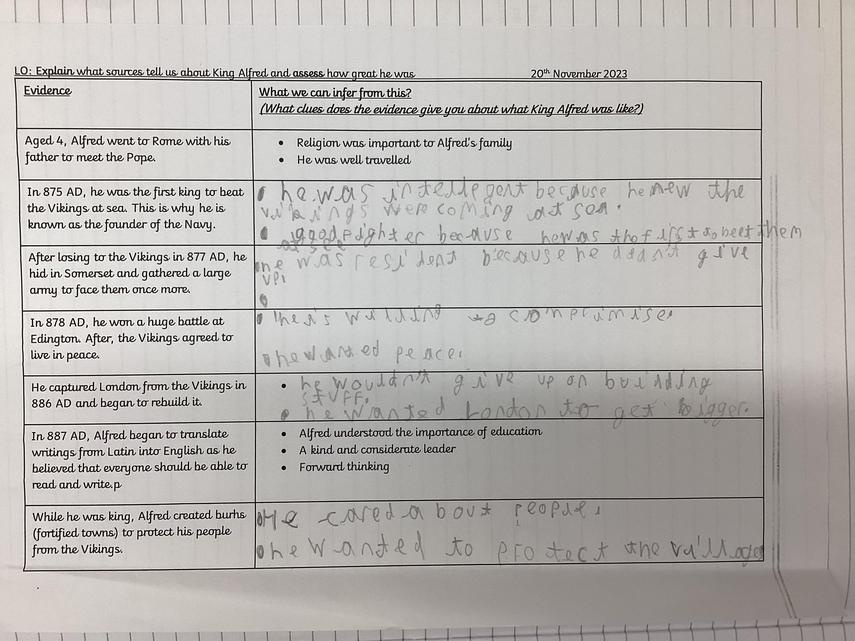 LO: Explain what sources tell us about King Alfred and assess how great he was 20th November 2023
Evidence
What we can infer from this?
(What clues does the evidence give you about what King Alfred was like?)
Aged 4, Alfred went to Rome with his
father to meet the Pope.
• Religion was important to Alfred's family
• He was well travelled
In 875 AD, he was the first king to beat
the Vikings at sea. This is why he is
known as the founder of the Navy.
• he was intellegent because he new the
vikings were coming at sea.
• good fighter because he was the first to beet them
at sea
After losing to the Vikings in 877 AD, he
hid in Somerset and gathered a large
army to face them once more.
he was resident because he didn't give
up.
In 878 AD, he won a huge battle at
Edington. After, the Vikings agreed to
live in peace.
• he is willing to comprimise.
• he wanted peace.
He captured London from the Vikings in
886 AD and began to rebuild it.
• he wouldn't give up on building
stuff.
• he wanted London to get bigger.
In 887 AD, Alfred began to translate
writings from Latin into English as he
believed that everyone should be able to
read and write.p
• Alfred understood the importance of education
• A kind and considerate leader
• Forward thinking
While he was king, Alfred created burhs
(fortified towns) to protect his people
from the Vikings.
• He cared about people.
• he wanted to protect the